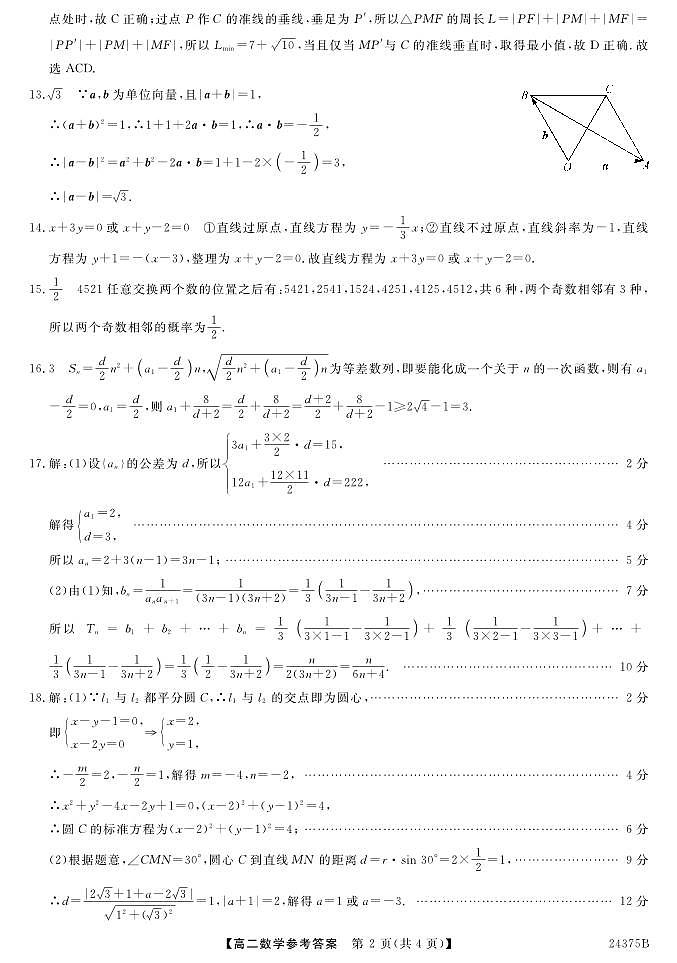 点处时,故 C 正确;过点 P 作 C 的准线的垂线,垂足为 P′,所以△PMF 的周长 L=|PF|+|PM|+|MF|=
|PP′|+|PM|+|MF|,所以 Lmin=7+√10,当且仅当 MP′与 C 的准线垂直时,取得最小值,故 D 正确.故
选 ACD.
13.√3 ∵a,b 为单位向量,且|a+b|=1,
∴(a+b)²=1,∴1+1+2a·b=1,∴a·b=-1/2,
∴|a-b|²=a²+b²-2a·b=1+1-2×(-1/2)=3,
∴|a-b|=√3.
B C b O a A
14.x+3y=0 或 x+y-2=0 ①直线过原点,直线方程为 y=-1/3 x;②直线不过原点,直线斜率为-1,直线
方程为 y+1=-(x-3),整理为 x+y-2=0.故直线方程为 x+3y=0 或 x+y-2=0.
15.1/2 4521 任意交换两个数的位置之后有:5421,2541,1524,4251,4125,4512,共 6 种,两个奇数相邻有 3 种,
所以两个奇数相邻的概率为1/2.
16.3 Sn=d/2 n²+(a₁-d/2)n,√(d/2 n²+(a₁-d/2)n)为等差数列,即要能化成一个关于 n 的一次函数,则有 a₁
-d/2=0,a₁=d/2,则 a₁+8/(d+2)=d/2+8/(d+2)=(d+2)/2+8/(d+2)-1≥2√4-1=3.
17.解:(1)设{an}的公差为 d,所以{3a₁+(3×2)/2·d=15, 12a₁+(12×11)/2·d=222, …… 2 分
解得{a₁=2, d=3, …… 4 分
所以 an=2+3(n-1)=3n-1; …… 5 分
(2)由(1)知,bn=1/(an an+1)=1/((3n-1)(3n+2))=1/3(1/(3n-1)-1/(3n+2)), …… 7 分
所以 Tn=b₁+b₂+…+bn=1/3(1/(3×1-1)-1/(3×2-1))+1/3(1/(3×2-1)-1/(3×3-1))+…+
1/3(1/(3n-1)-1/(3n+2))=1/3(1/2-1/(3n+2))=n/(2(3n+2))=n/(6n+4). …… 10 分
18.解:(1)∵l₁ 与 l₂ 都平分圆 C,∴l₁ 与 l₂ 的交点即为圆心, …… 2 分
即{x-y-1=0, x-2y=0 ⇒{x=2, y=1,
∴-m/2=2,-n/2=1,解得 m=-4,n=-2, …… 4 分
∴x²+y²-4x-2y+1=0,(x-2)²+(y-1)²=4,
∴圆 C 的标准方程为(x-2)²+(y-1)²=4; …… 6 分
(2)根据题意,∠CMN=30°,圆心 C 到直线 MN 的距离 d=r·sin 30°=2×1/2=1, …… 9 分
∴d=|2√3+1+a-2√3|/√(1²+(√3)²)=1,|a+1|=2,解得 a=1 或 a=-3. …… 12 分
【高二数学参考答案 第 2 页(共 4 页)】 24375B